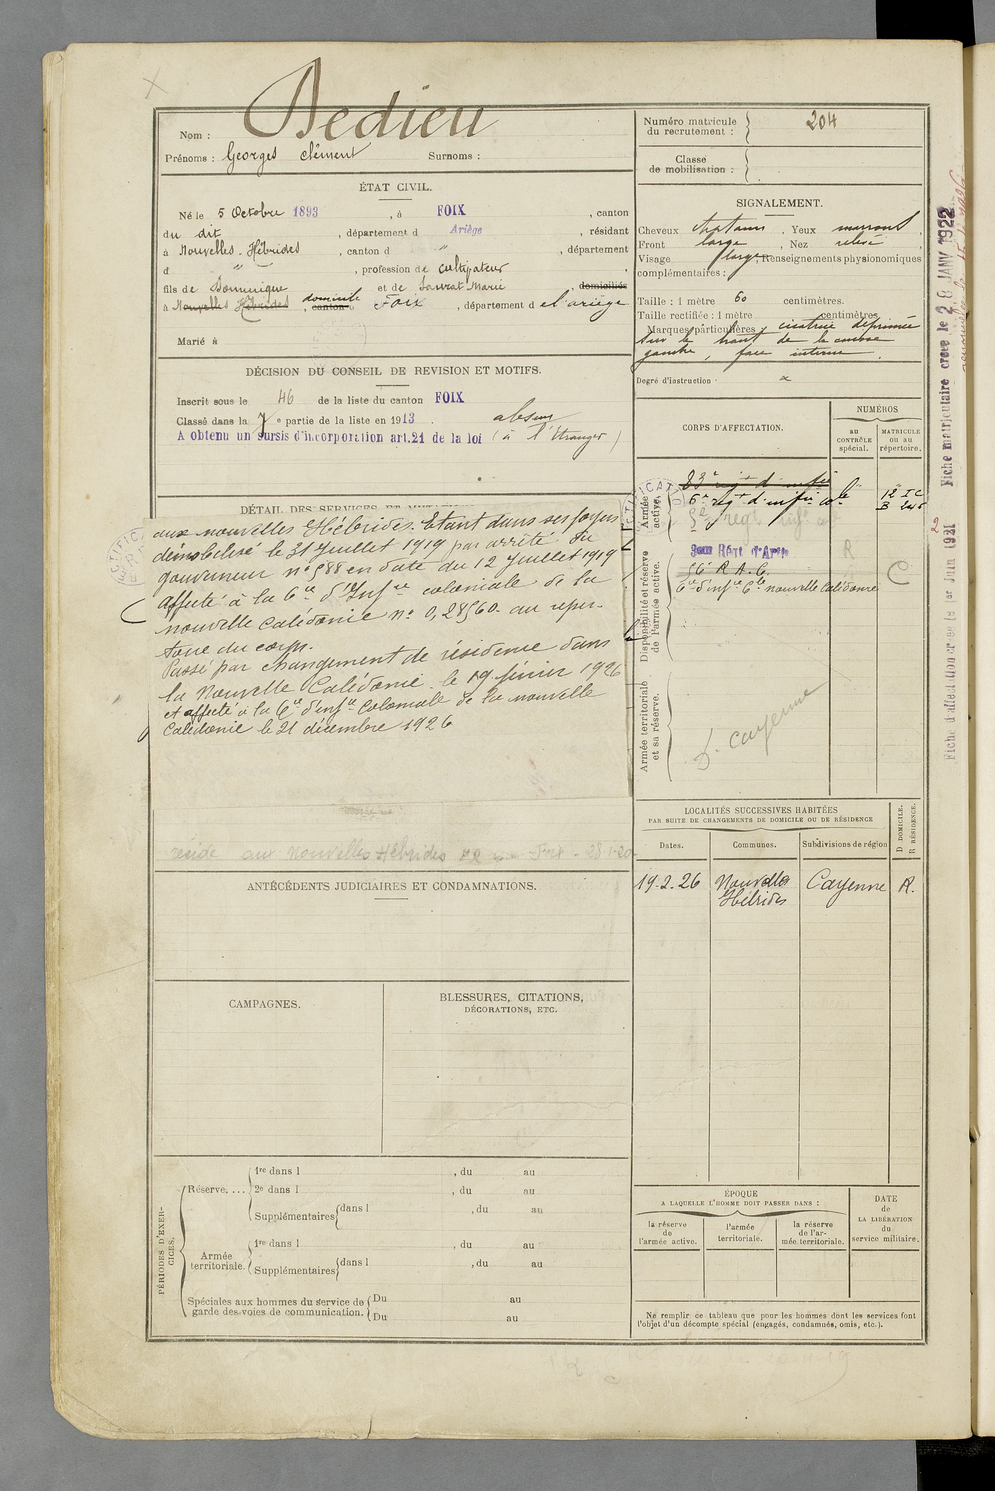 Nom : Dedieu
Prénoms : Georges clément Surnoms :
ÉTAT CIVIL.
Né le 5 Octobre 1893 , à FOIX , canton
du dit , département d Ariège , résidant
à Nouvelles-Hébrides , canton d " , département
d " , profession de cultivateur ,
fils de Dominique et de Laurat Marie , domiciliés
à Nouvelles Hébrides , canton domicile Foix , département de l'ariège
Marié à
DÉCISION DU CONSEIL DE REVISION ET MOTIFS.
Inscrit sous le 46 de la liste du canton FOIX
Classé dans la 7 e partie de la liste en 1913 . absent
A obtenu un sursis d'incorporation art.21 de la loi (à l'Etranger)
DÉTAIL DES SERVICES ET
aux nouvelles Hébrides. Etant dans ses foyers
démobilisé le 31 Juillet 1919 par arrêté du
gouverneur n° 588 en date du 12 Juillet 1919
Affecté à la Cie d'Infie coloniale de la
nouvelle Calédonie n° 0,28560 au reper-
toire du corps.
Passé par changement de résidence dans
la Nouvelle Calédonie le 19 février 1926
et affecté à la Cie d'infie Coloniale de la nouvelle
Calédonie le 31 décembre 1926
reside aux Nouvelles Hébrides Foix - 28-1-20
ANTÉCÉDENTS JUDICIAIRES ET CONDAMNATIONS.
CAMPAGNES.
BLESSURES, CITATIONS,
DÉCORATIONS, ETC.
PÉRIODES D'EXER-
CICES.
Réserve....
1re dans l , du au
2e dans l , du au
Supplémentaires dans l , du au
Armée
territoriale.
1re dans l , du au
Supplémentaires dans l , du au
Spéciales aux hommes du service de
garde des voies de communication.
Du au
Du au
Numéro matricule
du recrutement : 204
Classe
de mobilisation :
SIGNALEMENT.
Cheveux chatains , Yeux marrons
Front large , Nez relevé
Visage large , Renseignements physionomiques
complémentaires :
Taille : 1 mètre 60 centimètres.
Taille rectifiée : 1 mètre centimètres
Marques particulières : cicatrice déprimée
sur le haut de la cuisse
gauche, face interne.
Degré d'instruction :
CORPS D'AFFECTATION.
NUMÉROS
AU
CONTRÔLE
spécial.
MATRICULE
OU AU
RÉPERTOIRE.
Armée
active.
83e regt d'infie
6e regt d'infie cole
Disponibilité et réserve
de l'armée active.
R
56e R.A.C.
Cie d'infie Cle nouvelle Calédonie
C
Armée territoriale
et sa réserve.
S. Cayenne
LOCALITÉS SUCCESSIVES HABITÉES
PAR SUITE DE CHANGEMENTS DE DOMICILE OU DE RÉSIDENCE
D DOMICILE.
R RÉSIDENCE.
Dates.
Communes.
Subdivisions de région
19-2-26 Nouvelles Cayenne R.
Hébrides
ÉPOQUE
A LAQUELLE L'HOMME DOIT PASSER DANS :
la réserve
de
l'armée active.
l'armée
territoriale.
la réserve
de l'ar-
mée territoriale.
DATE
de
LA LIBÉRATION
du
service militaire.
Ne remplir ce tableau que pour les hommes dont les services font
l'objet d'un décompte spécial (engagés, condamnés, omis, etc.).
Fiche matriculaire créée le 26 JANV 1922
Fiche d'affectation créée le 1er Juin 1931